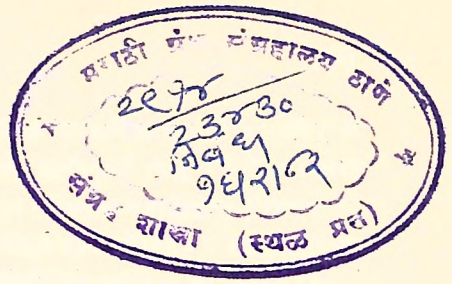 मराठी ग्रंथ संग्रहालय ठाणे
२९१४
२३४३०
निबंध
संदर्भ शाखा (स्थळ प्रत)